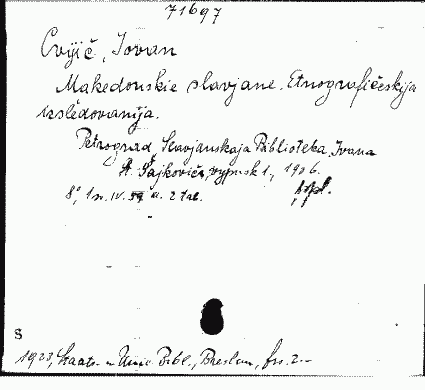 71697
Cvijič, Jovan
Makedonskie slavjane. Etnografičeskija
izslědovanija.
Petrograd, Slavjanskaja Biblioteka Ivana
A. Šajkoviča, vypusk 1, 1906.
8°, 1 n. IV. 59 u. 2 tal.
S
1923, Staats- u. Univ. Bibl., Breslau, frs. 2.-